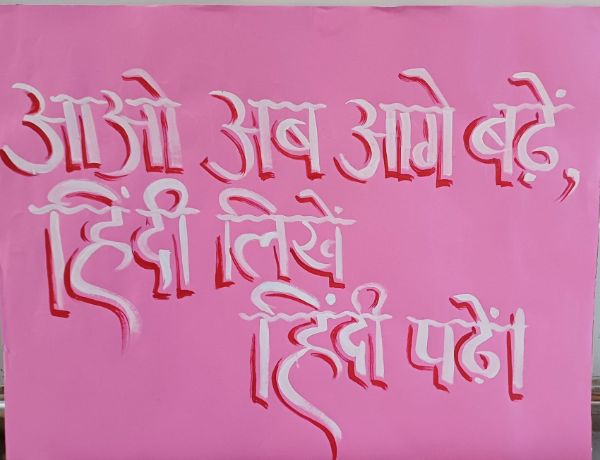 आओ अब आगे बढ़ें,
हिंदी लिखें
हिंदी पढ़ें।